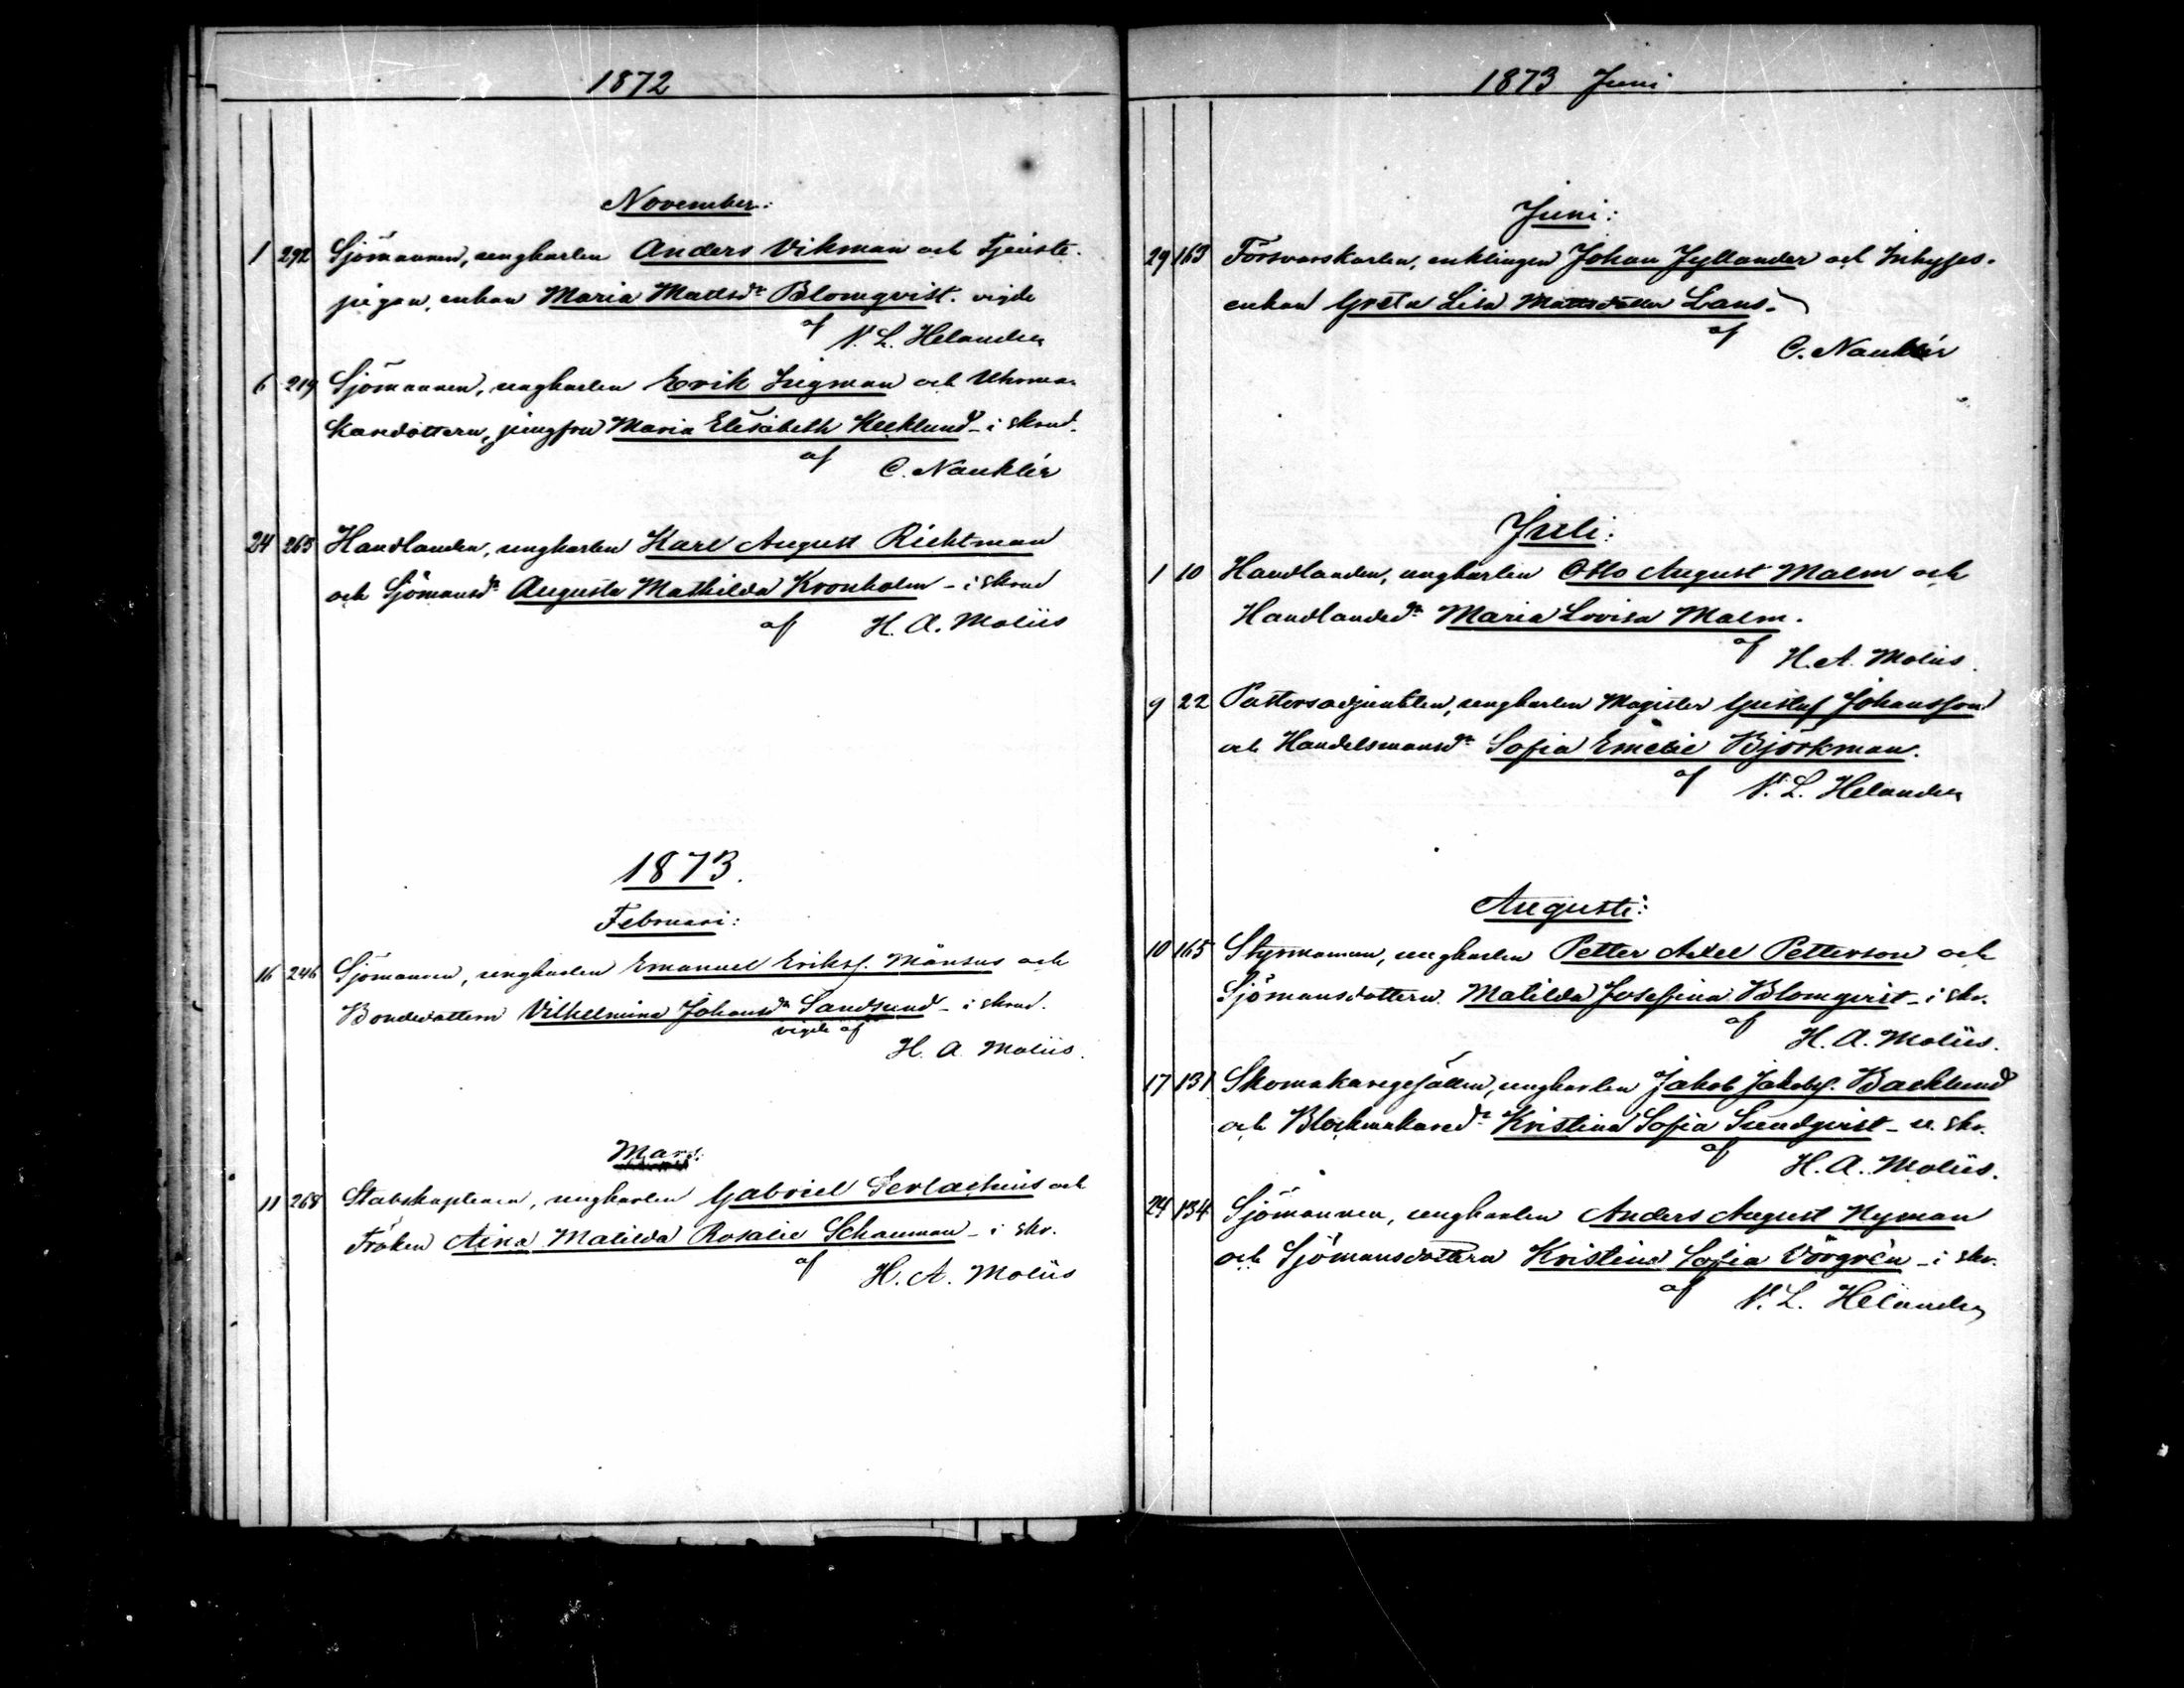 1872
November:
1 292 Sjömannen, ungkarlen Anders Vikman och tjenste-
pigan, enkan Maria Mattsdr Blomqvist. vigde
af N. L. Helander
6 219 Sjömannen, ungkarlen Erik Ingman och Uhrma-
karedottern, jungfru Maria Elisabeth Keeklund - i skrud.
af C. Nauklér
24 265 Handlanden, ungkarlen Karl August Riektman
och Sjömansdr Augusta Mathilda Kronholm - i skrud
af H. A. Moliis
1873.
Februari:
16 246 Sjömannen, ungkarlen Emanuel Eriksf. Månsus och
Bondedottern Vilhelmina Johansdr Sandsund - i skrud.
vigde af
H. A. Moliis.
Mars:
11 268 Stabskaptenen, ungkarlen Gabriel Serlachius och
Fröken Aina Matilda Rosalie Schauman - i skr.
af H. A. Moliis
1873 Juni
Juni:
29 163 Försvarskarlen, enklingen Johan Jyllander och Inhyses-
enkan Greta Lisa Mattsdotter Lans.
af C. Nauklér
Juli:
1 10 Handlanden, ungkarlen Otto August Malm och
Handlandedr Maria Lovisa Malm.
af H. A. Moliis.
9 22 Pastorsadjunkten, ungkarlen Magister Gustaf Johansson
och Handelsmansdr Sofia Emelie Björkman.
af N. L. Helander
Augusti:
10 165 Styrmannen, ungkarlen Petter Axel Petterson och
Sjömansdottern Matilda Josefina Blomqvist - i skr.
af H. A. Moliis.
17 131 Skomakaregesällen, ungkarlen Jakob Jakobsf. Backlund
och Blockmakaredr Kristina Sofia Sundqvist - u. skr.
af H. A. Moliis.
24 134 Sjömannen, ungkarlen Anders August Nyman
och Sjömansdottern Kristina Sofia Vörgrén - i skr.
af N. L. Helander